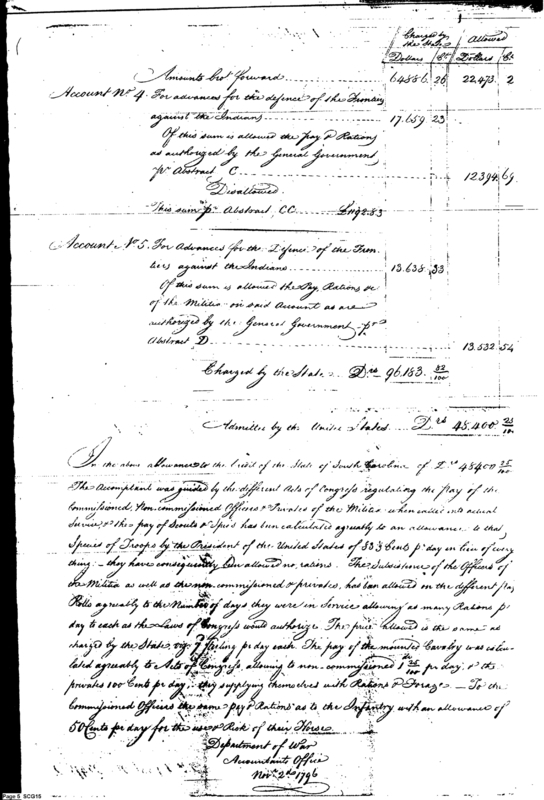 Charged by the State Allowed
Dollars Cts Dollars Cts
Amounts brot forward 64886 26 22,473 2
Account No 4. For advances for the defence of the Frontiers
against the Indians 17.659 23
Of this sum is allowed the pay & Rations
as authorized by the General Government
pr Abstract C 12394 69
Disallowed
This sum pr Abstract CC
Account No 5. For Advances for the Defence of the Fron-
tiers against the Indians 13.638 33
Of this sum is allowed the Pay, Rations &c
of the Militia on said Account as are
authorized by the General Government pr
Abstract D 13.532 54
Charged by the State Drs 96.183 82/100
Admitted by the United States Drs 48.400 25/100
In the above allowance to the Credit of the State of South Carolina of Drs 48400 25/100
The Accomptant was guided by the different Acts of Congress regulating the pay of the
Commissioned, Non-commissioned Officers & Privates of the Militia when called into actual
Service, & the pay of Scouts & Spies has been calculated agreeably to an allowance to that
Species of Troops by the President of the United States of 83⅓ Cents pr day in lieu of every
thing: they have consequently been allowed no rations. The Subsistence of the Officers of
the Militia as well as the non-commissioned & privates, has been allowed on the different Pay
Rolls agreeably to the Number of days they were in Service allowing as many Rations pr
day to each as the Laws of Congress would authorize. The price allowed is the same as
charged by the State, viz 7d Sterling pr day each. The pay of the mounted Cavalry was calcu-
lated agreeably to Acts of Congress allowing to non-commissioned pr day, & the
privates 100 Cents pr day, they supplying themselves with Rations & Forage — To the
Commissioned Officers the same pay & Rations as to the Infantry with an allowance of
50 Cents per day for the use & Risk of their Horse.
Department of War
Accountants Office
Novr 2nd 1796
Page 5 SCG15